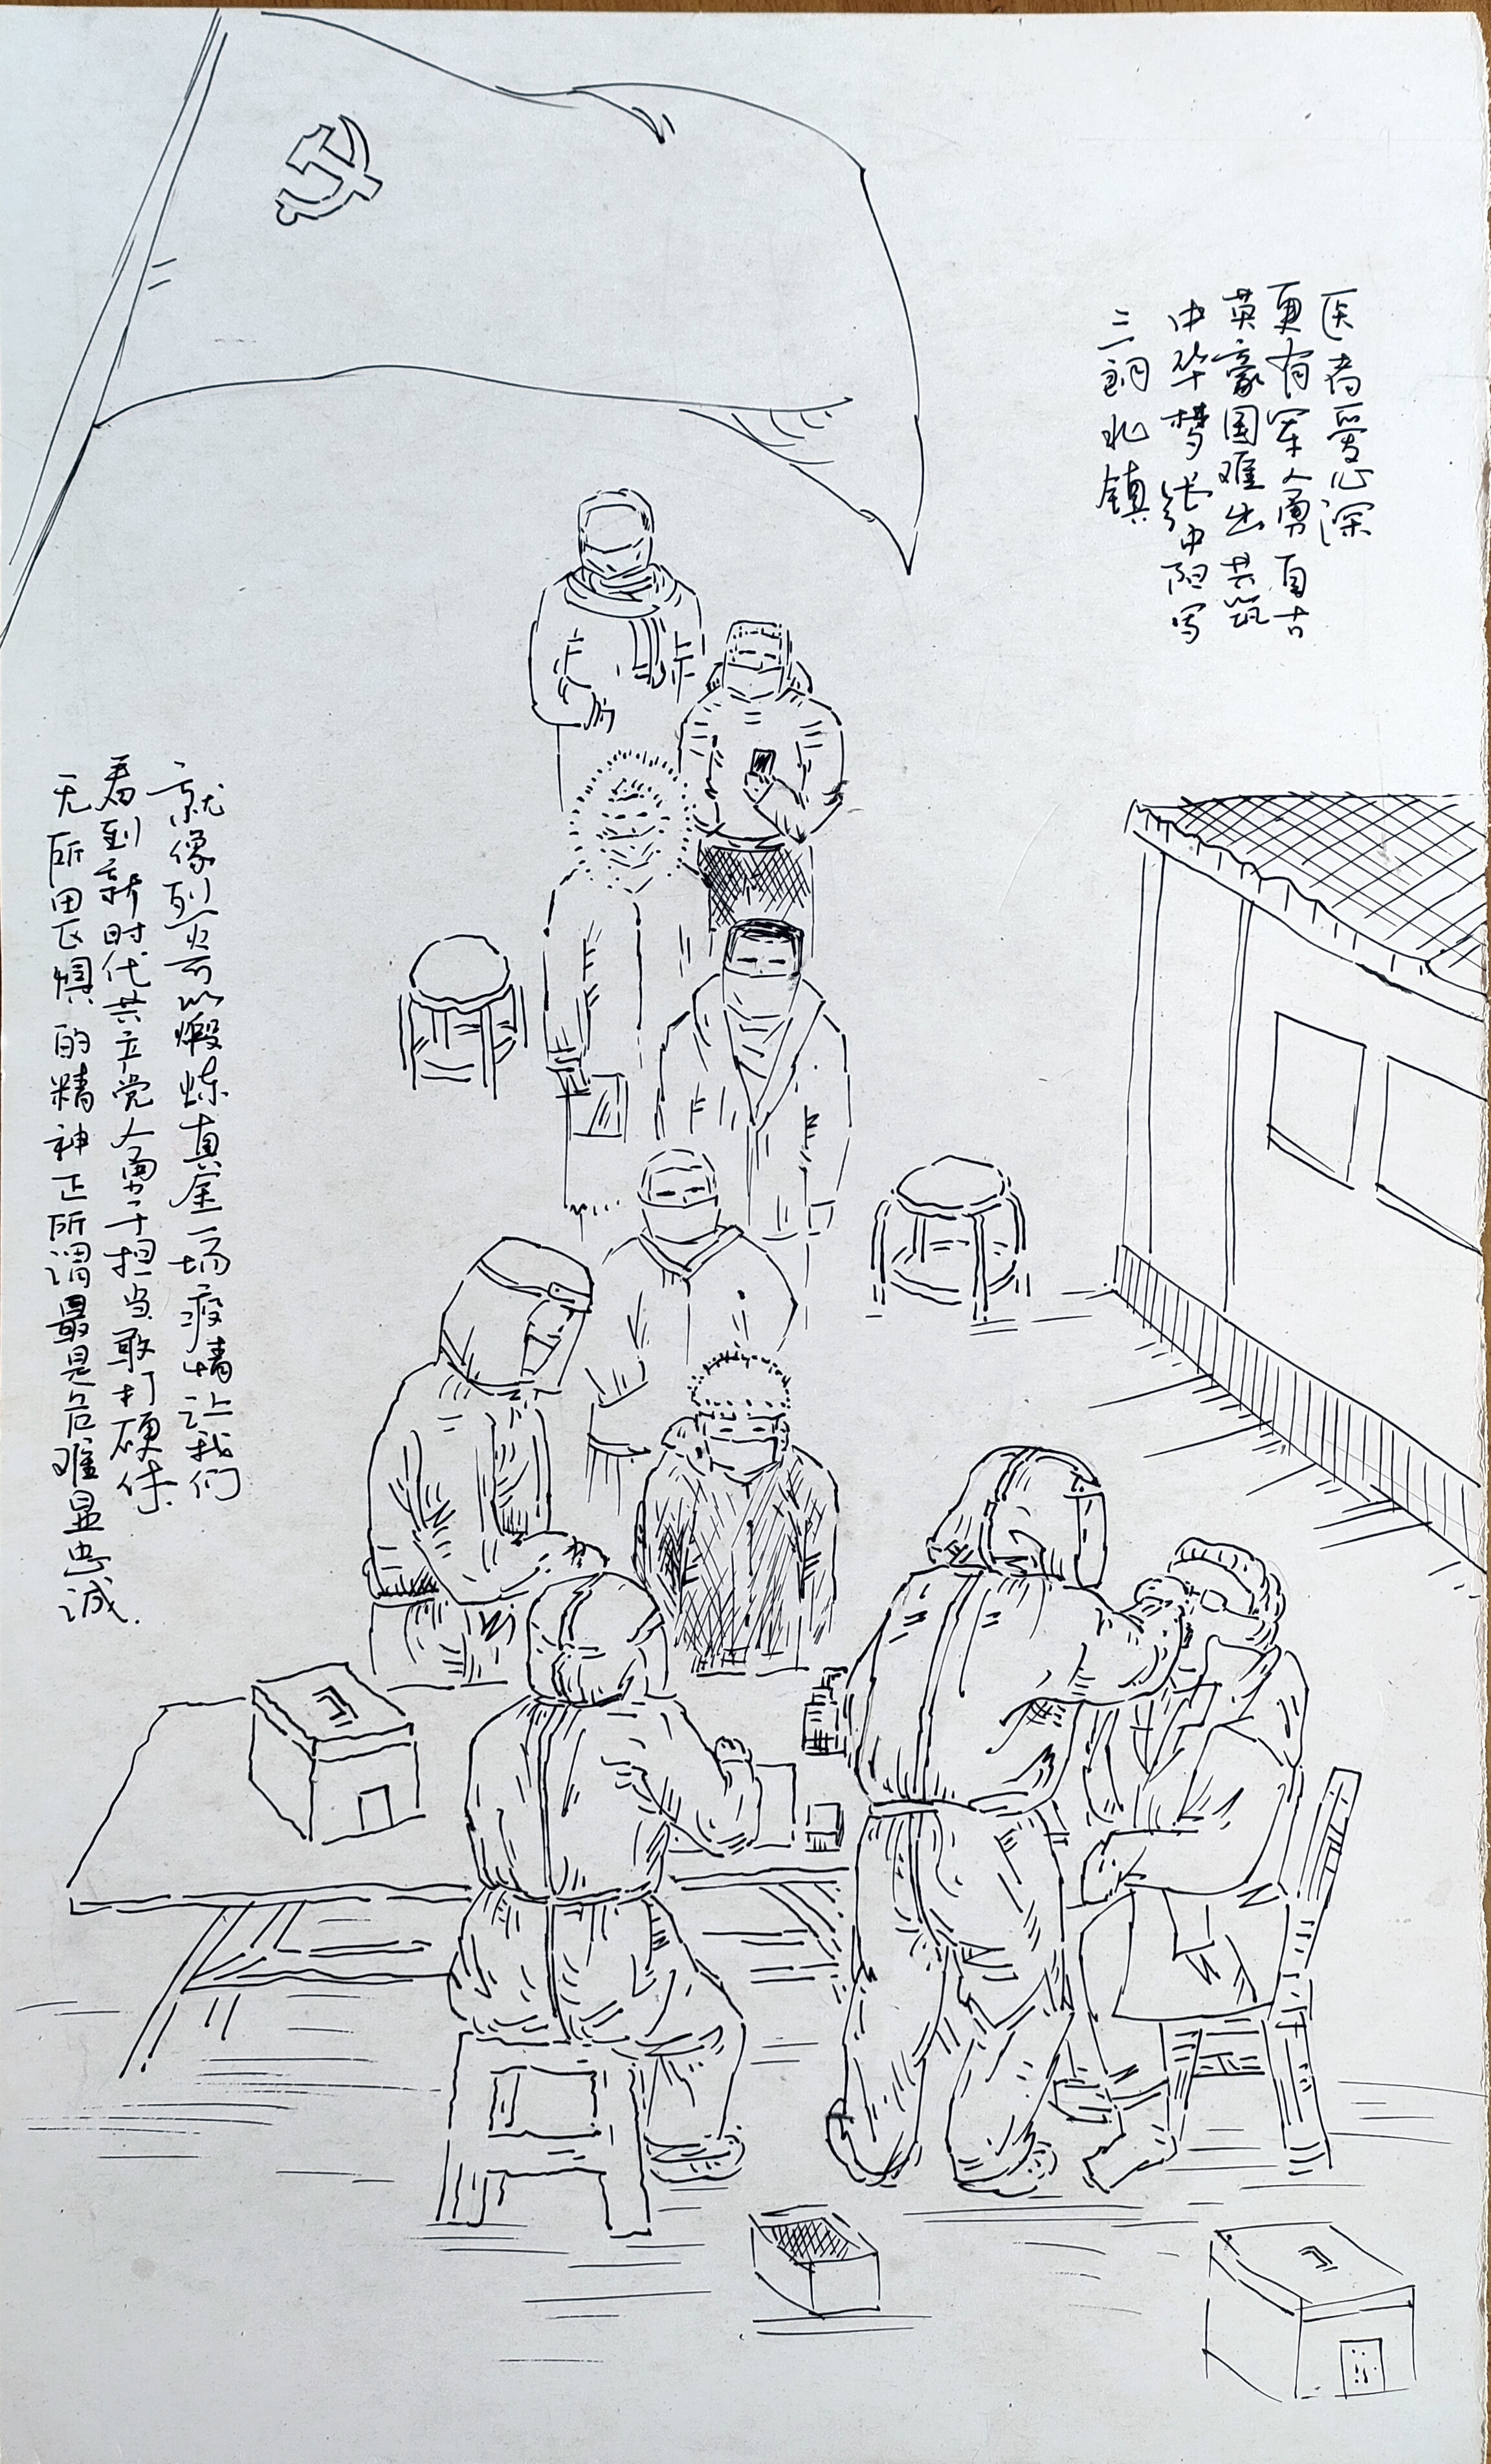 医者爱心深
更有军人勇自古
英豪国难出共筑
中华梦张中阳写
三北镇
就像烈火可以煅炼真金一场疫情让我们
看到新时代共产党人勇于担当敢打硬仗
无所畏惧的精神正所谓最是危难显忠诚.